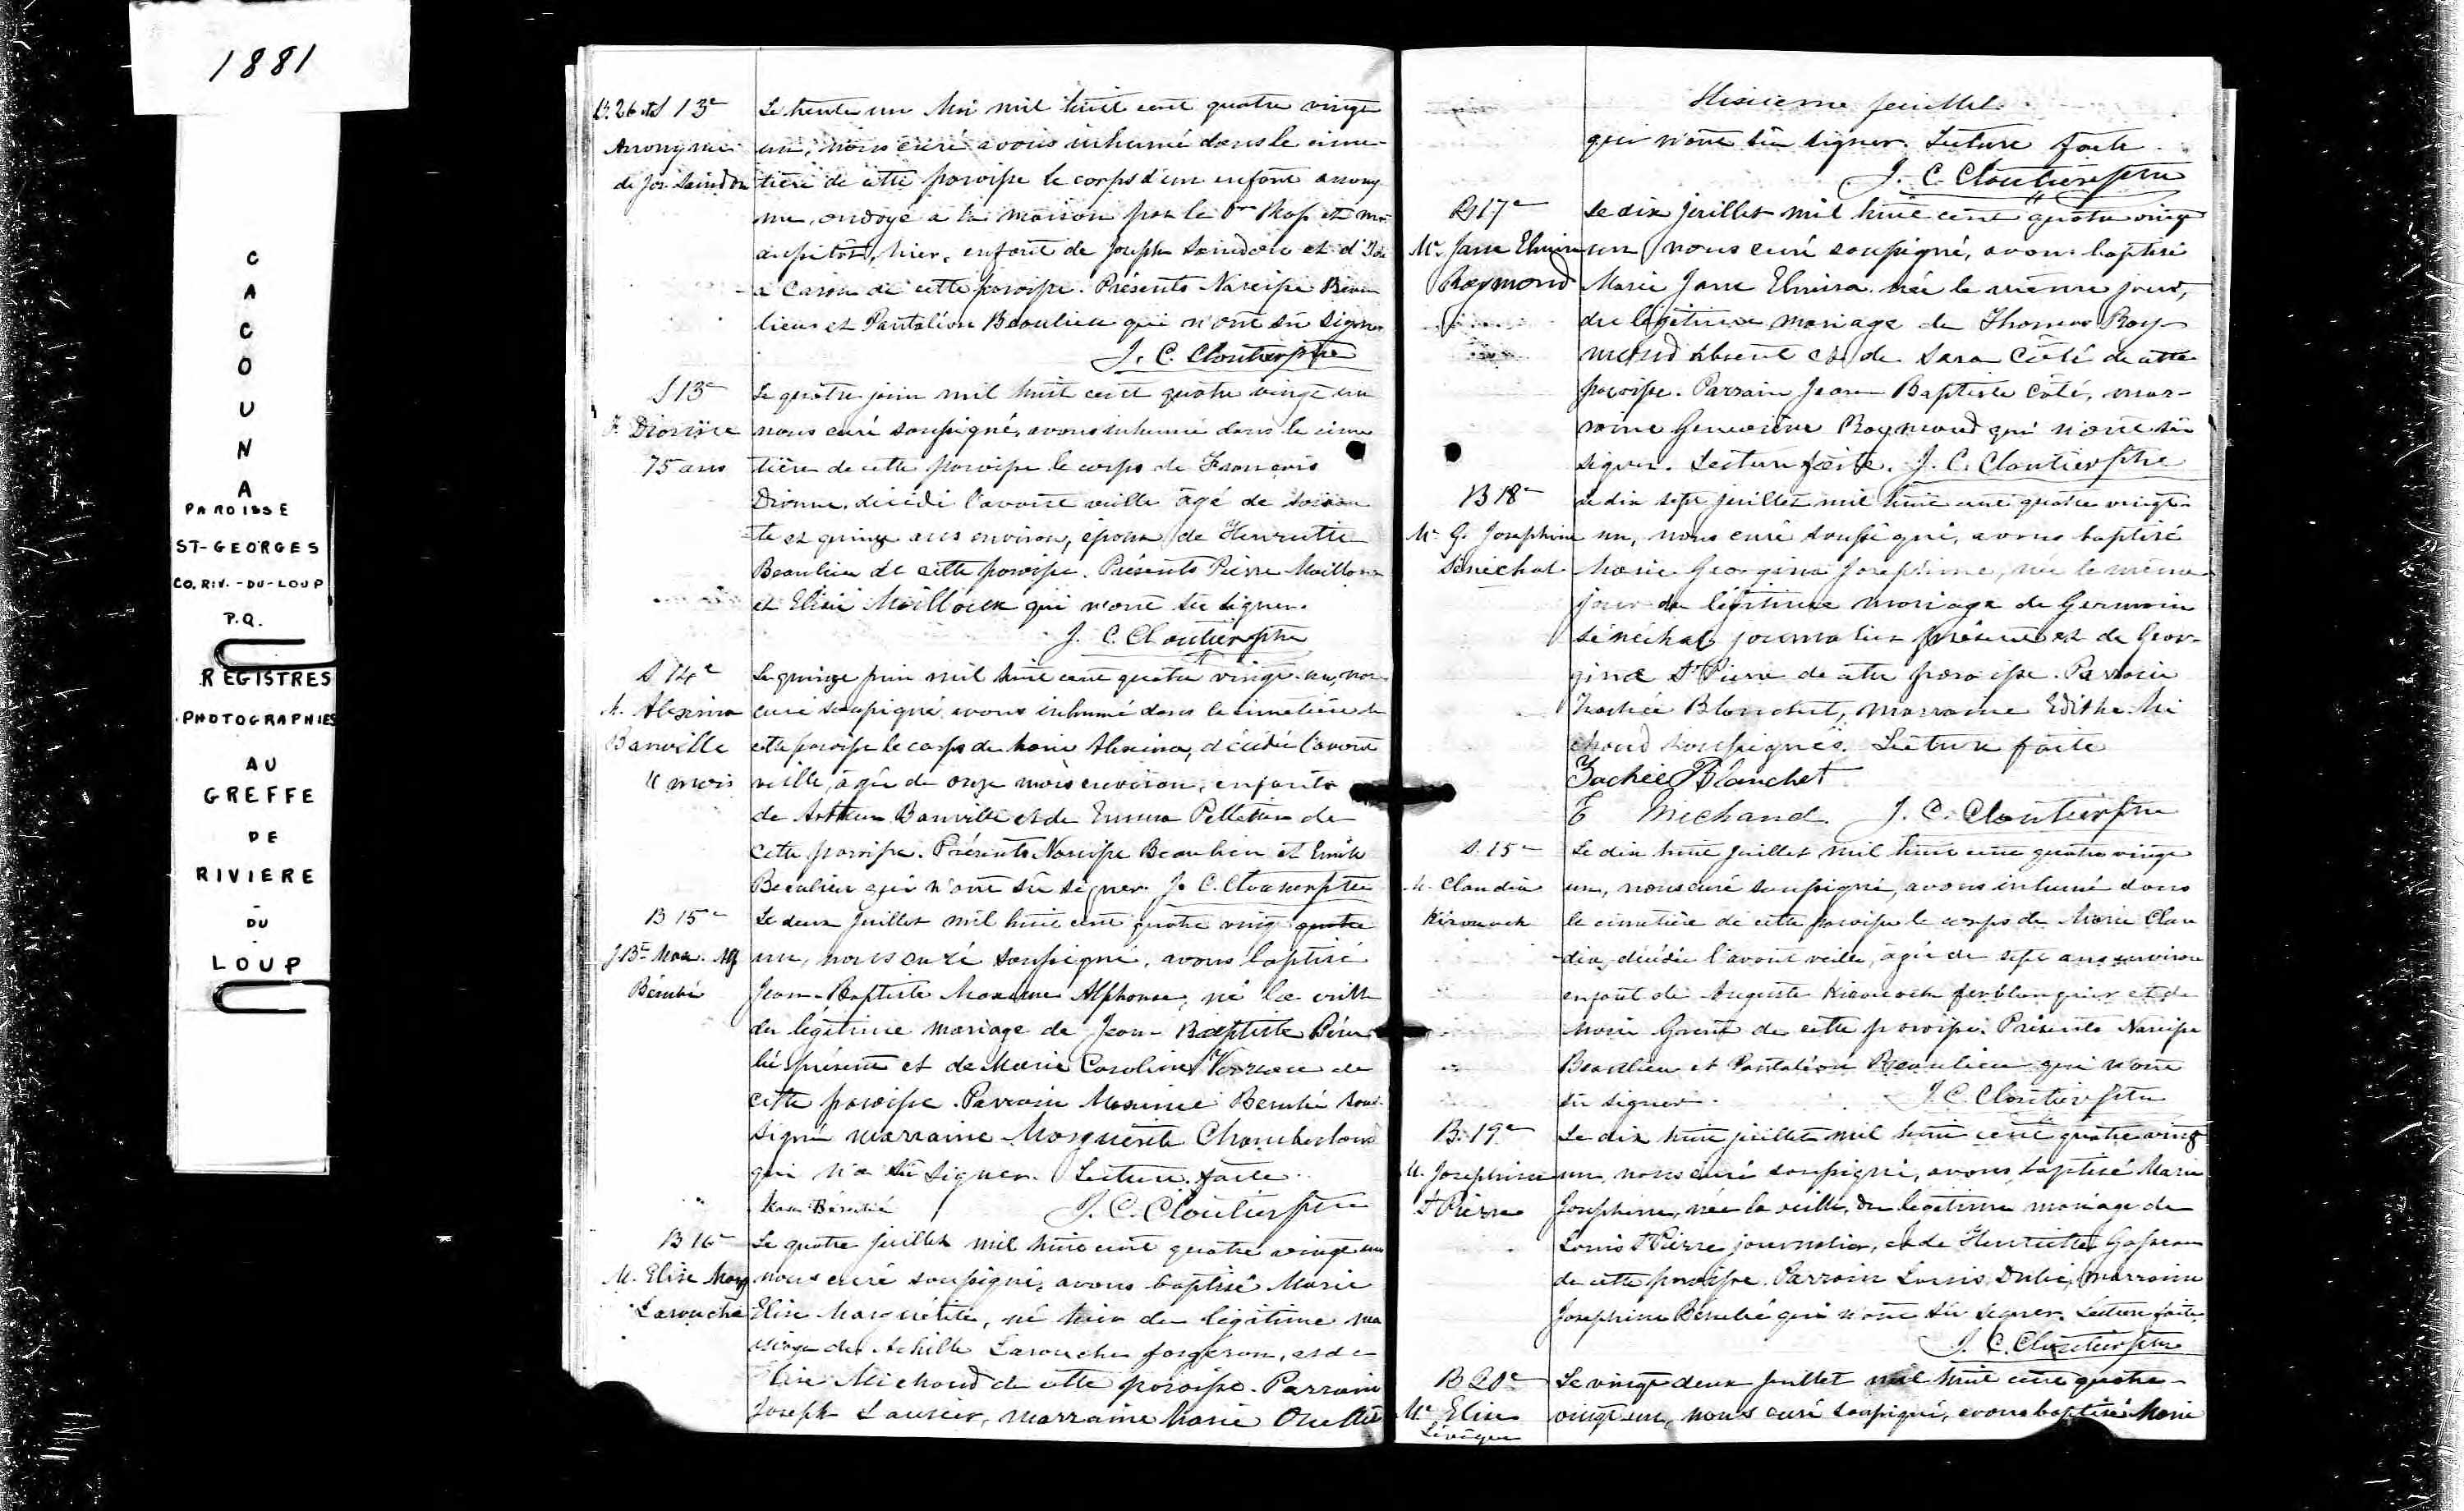 1881
CACOUNA
PAROISSE
ST-GEORGES
CO. RIV.-DU-LOUP
P.Q.
REGISTRES
PHOTOGRAPHIES
AU
GREFFE
DE
RIVIERE
-
DU
-
LOUP
B. 26 et S 13e
Anonyme
de Jos. Saindon
Le trente un Mai mil huit cent quatre vingt
un, nous curé avons inhumé dans le cime-
tière de cette paroisse le corps d'un enfant anony
me, ondoyé à la maison par le et
aussitôt, hier, enfant de Joseph Saindon et d'
Caron de cette paroisse. Présents Narcisse Beau
lieu et Pantaléon Beaulieu qui n'ont su signer
J. C. Cloutier ptre
S 13e
F. Dionne
75 ans
Le quatre juin mil huit cent quatre vingt un
nous curé soussigné, avons inhumé dans le cime
tière de cette paroisse le corps de François
Dionne, décédé l'avant veille âgé de soixan
te et quinze ans environ, époux de Henriette
Beaulieu de cette paroisse. Présents Pierre Mailloux
et Elisée Mailloux qui n'ont su signer.
J. C. Cloutier ptre
S 14e
M. Alexina
Banville
11 mois
Le quinze juin mil huit cent quatre vingt un, nous
curé soussigné avons inhumé dans le cimetière de
cette paroisse le corps de Marie Alexina, décédée l'avant
veille, âgée de onze mois environ, enfant
de Arthur Banville et de Emma Pelletier de
cette paroisse. Présents Narcisse Beaulieu et
Beaulieu qui n'ont su signer. J. C. Cloutier ptre
B 15e
J. Bte Max. Alf
Bérubé
Le deux juillet mil huit cent quatre vingt quatre
un, nous curé soussigné, avons baptisé
Jean-Baptiste Maxime Alphonse, né la veille
du légitime mariage de Jean-Baptiste Béru
bé présent et de Marie Caroline de
cette paroisse. Parrain Maxime Bérubé sous-
signé marraine Marguerite Chamberland
qui n'a su signer. Lecture faite.
Max Bérubé J. C. Cloutier ptre
B 16e
M. Elise Marg
Larouche
Le quatre juillet mil huit cent quatre vingt un
nous curé soussigné, avons baptisé Marie
Elise Marguerite, né hier du légitime ma
riage de Achille Larouche forgeron, et de
Elise Michaud de cette paroisse. Parrain
Joseph Saucier, marraine Marie Ouellet
Sixième feuillet.
qui n'ont su signer. Lecture faite.
J. C. Cloutier ptre
B 17e
Me Jane Elmira
Raymond
Le dix juillet mil huit cent quatre vingt
un nous curé soussigné, avons baptisé
Marie Jane Elmira née le même jour,
du légitime mariage de Thomas Ray-
mond absent et de Sara Côté de cette
paroisse. Parrain Jean Baptiste Côté, mar-
raine Geneviève Raymond qui n'ont su
signer. Lecture faite. J. C. Cloutier ptre
B 18e
Me G. Josephine
Sénéchal
Le dix sept juillet mil huit cent quatre vingt-
un, nous curé soussigné, avons baptisé
Marie Georgina Josephine, née le même
jour du légitime mariage de Germain
Sénéchal journalier présent et de Geor-
gina St Pierre de cette paroisse. Parrain
Zachée Blanchet, marraine Edithe Mi
chaud soussignés. Lecture faite
Zachée Blanchet
E Michaud. J. C. Cloutier ptre
S. 15e
M. Claudia
Kirouack
Le dix huit juillet mil huit cent quatre vingt
un, nous curé soussigné, avons inhumé dans
le cimetière de cette paroisse le corps de Marie Clau
dia, décédée l'avant veille, âgée de sept ans environ
enfant de Auguste Kirouack ferblanquier et de
Marie de cette paroisse. Présents Narcisse
Beaulieu et Pantaléon Beaulieu qui n'ont
su signer. J. C. Cloutier ptre
B. 19e
M. Josephine
St Pierre
Le dix huit juillet mil huit cent quatre vingt
un, nous curé soussigné, avons baptisé Marie
Josephine, née la veille, du légitime mariage de
Louis St Pierre journalier, et de Henriette
de cette paroisse. Parrain Louis Dubé, marraine
Josephine Bérubé qui n'ont su signer. Lecture faite.
J. C. Cloutier ptre
B 20e
Me Elise
Lévêque
Le vingt deux juillet mil huit cent quatre-
vingt un, nous curé soussigné, avons baptisé Marie